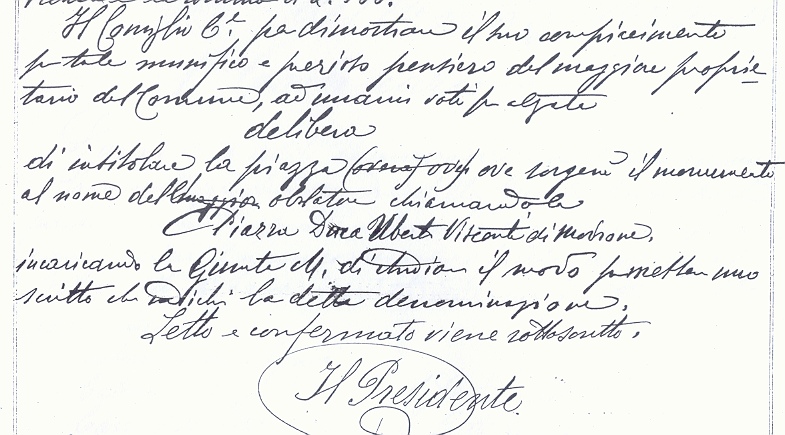 Il Consiglio C.le per dimostrare il suo compiacimento
per tale munifico e pensiero del maggiore proprie=
tario del Comune, ad unanimi voti per alzata
delibera
di intitolare la piazza ove sorgerà il monumento
al nome dell' oblatore chiamandola
Piazza Duca Uberto Visconti di Modrone,
incaricando la Giunta M. di studiare il modo per mettere uno
scritto che indichi la detta denominazione.
Letto e confermato viene sottoscritto.
Il Presidente